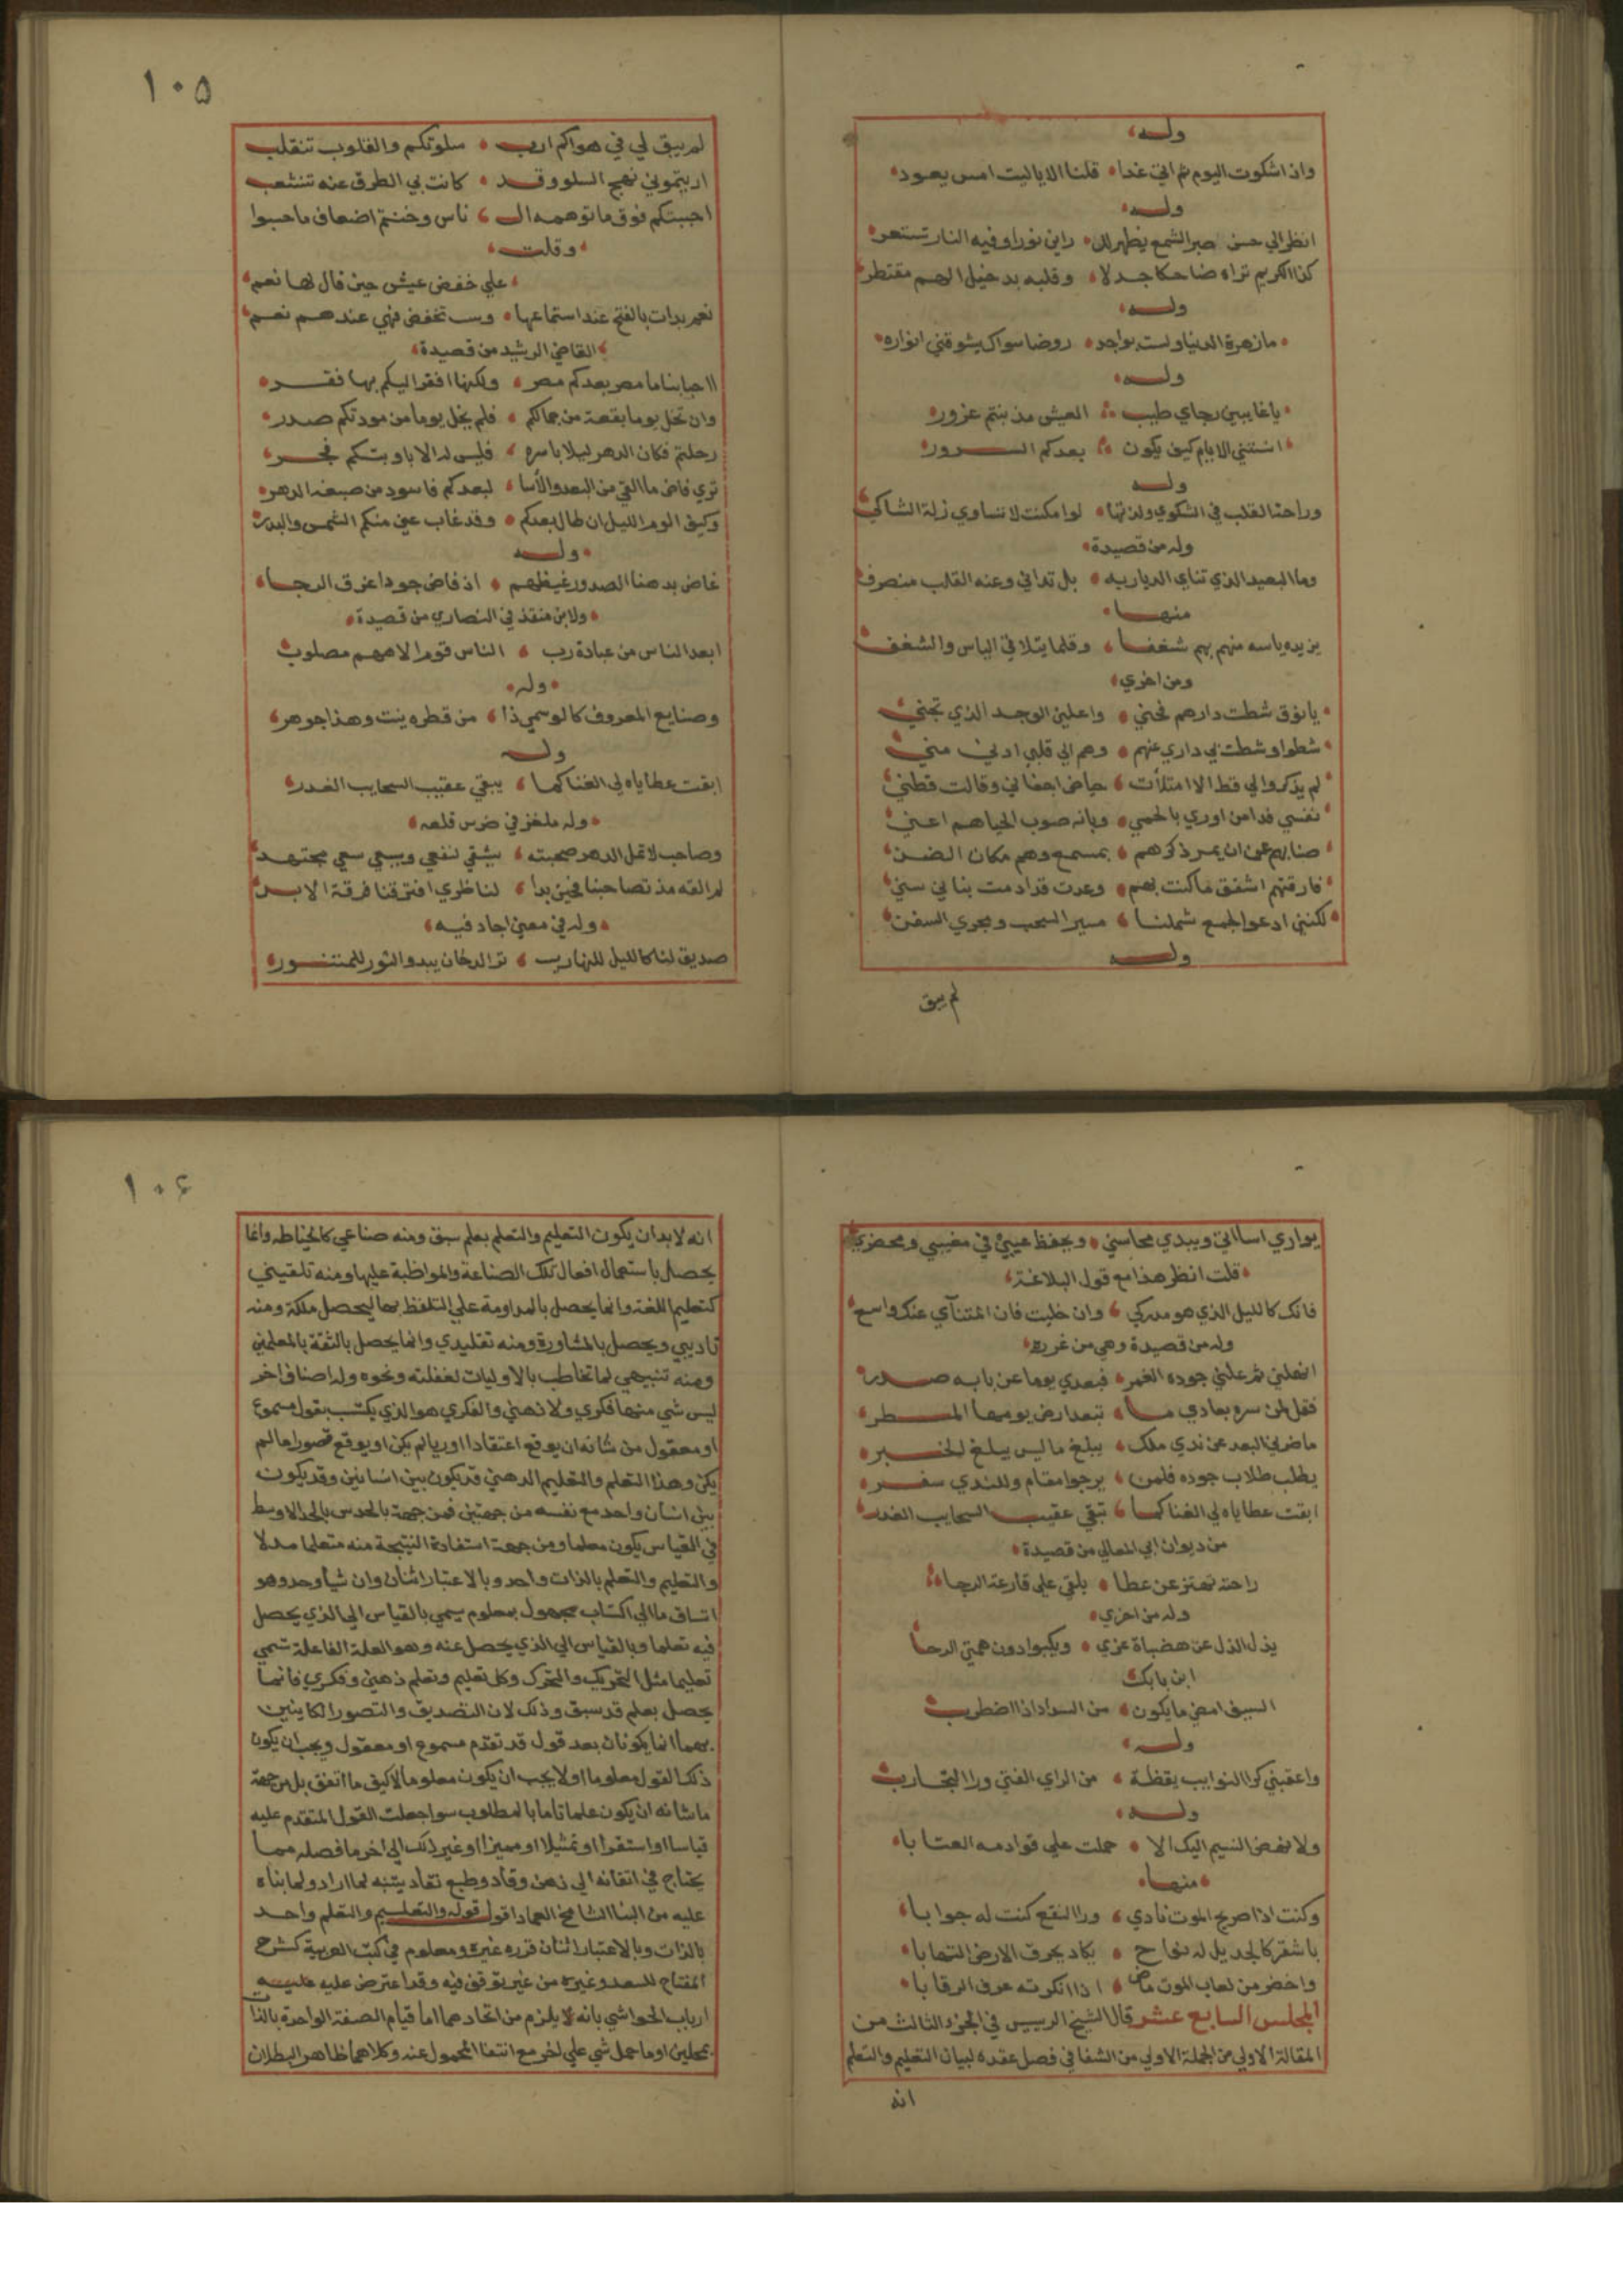 وله
واذا شكوت اليوم ثم اتي غدا قلنا الا ياليت امس يعود
وله
انظر الي حسن صبر الشمع يظهر لل راين نورا وفيه النار تستعر
كذا الكريم تراه ضاحكا جدلا وقلبه بدخيل الهم منفطر
وله
ما زهرة الدنيا ولست بواجد روضا سواك يشوقني انواره
وله
يا غايبين رجاي طيب العيش مذ بنتم غرور
انستني الايام كيف يكون بعدكم السرور
وله
وراحة القلب في الشكوي ولذتها لو امكنت لا تساوي زلة الشاكي
وله من قصيدة
وما البعيد الذي تناي الديار به بل تداني وعنه القلب منصرف
منها
يزيده ياسه منهم بهم شغفا وقلما يتلاقي الياس والشغف
ومن اخري
يا نوق شطت دارهم فحني واعلني الوجد الذي تجني
شطوا وشطت بي داري عنهم وهم الي قلبي ادني مني
لم يذكروا لي قط الا امتلأت حياض اجفاني وقالت قطني
نفسي فدا من اوري بالحمي وبانه صوب الحيا هم اعني
ضنا بهم عن ان يمر ذكرهم بمسمع وهم مكان الضن
فارقتهم اشفق ما كنت بهم وعدت قد ادمت بناني سني
لكنني ادعو لجمع شملنا مسير السحب ومجري السفن
وله
لم يبق
١٠٥
لم يبق لي في هواكم ارب سلوتكم والقلوب تنقلب
اريتموني نهج السلو وقد كانت بي الطرق عنه تنشعب
احببتكم فوق ما توهمه ال ناس وخنتم اضعاف ما حسبوا
وقلت
علي خفض عيش حين قال لها نعم
نعم بدات بالفتح عند استماعها وست تخفض فهي عندهم نعم
القاضي الرشيد من قصيدة
ااحبابنا ما مصر بعدكم مصر ولكنها افقر اليكم بها فقر
وان تخل يوما بقعة من جمالكم فلم يخل يوما من مودتكم صدر
رحلتم فكان الدهر ليلا باسره فليس له الا باوبتكم فجر
تري فاض ما القي من البعد والأسا لبعدكم فاسود من صبغه الدهر
وكيف الوم الليل ان طال بعدكم وقد غاب عني منكم الشمس والبدر
وله
غاض بدهنا الصدور غيظهم اذ فاض جودا عرق الرجا
ولابن منقذ في النصاري من قصيدة
ابعد الناس من عبادة رب الناس قوم الاههم مصلوب
وله
وصنايع المعروف كالوسمي ذا من قطره ينبت وهذا جوهر
وله
ابقت عطاياه لي الغنا كما يبقي عقيب السحايب الغدر
وله ملغز في ضرس قلعه
وصاحب لا تمل الدهر صحبته يشقي لنفعي ويسعي سعي مجتهد
لم القه مذ تصاحبنا فحين بدا لناظري افترقنا فرقة الابد
وله في معني اجاد فيه
صديق لنا كالليل للنهار يستر الدخان يبدو النور للمتنور
يواري اسااتي ويبدي محاسني ويحفظ عيبي في مغيبي ومحضري
قلت انظر هذا مع قول البلاغة
فانك كالليل الذي هو مدركي وان خلت فان المتنآي عنك واسع
وله من قصيدة وهي من غرره
انهلني ثم علني جوده الغمر فبعدي يوما عن بابه صدر
فقل لمن سره بعادي ما تبعد ارض يومها المطر
ما ضرني البعد عن ندي ملك يبلغ ما ليس يبلغ الخبر
يطلب طلاب جوده فلمن يرجو مقام وللندي سفر
ابقت عطاياه لي الغنا كما تبقي عقيب السحايب الغدر
من ديوان ابي المعالي من قصيدة
راحة تهتز عن عطا بلقي علي قارعة الرجاء
وله من اخري
يذل الذل عن هضباة عزي ويكبوا دون همتي الرجا
ابن بابك
السيف امضي ما يكون من السداد اذا اضطرب
وله
واعقبني كرا النوايب يقظة من الراي الفتي ورا التجارب
وله
ولا نهض النسيم اليك الا حملت علي قوادمه العتابا
منها
وكنت اذا صريح الموت نادي ورا النقع كنت له جوابا
باشقر كالجديل له نجاح يكاد يحرق الارض التهابا
واخضر من لعاب الموت ماض اذا انكرته عرف الرقابا
المجلس السابع عشر قال الشيخ الرييس في الجزء الثالث من
المقالة الاولي من الجملة الاولي من الشفا في فصل عقده لبيان التعليم والتعلم
انه
١٠٦
انه لا بد ان يكون التعليم والتعلم بعلم سبق ومنه صناعي كالخياطه وانما
يحصل باستعمال افعال تلك الصناعة والمواظبة عليها ومنه تلقيني
كتعليم اللغة وانما يحصل بالمداومة علي التلفظ بها ليحصل ملكة ومنه
تاديبي ويحصل بالمشاورة ومنه تقليدي وانما يحصل بالثقة بالمعلمين
ومنه تنبيهي لما تخاطب بالاوليات لغفلته ونحوه وله اصناف اخر
ليس شي منها فكري ولا ذهني والفكري هو الذي يكتسب بقول مسموع
او معقول من شانه ان يوقع اعتقادا او رايا لم يكن او يوقع تصورا ما لم
يكن وهذا التعلم والتعليم الذهني قد يكون بين انسانين وقد يكون
بين انسان واحد مع نفسه من جهتين فمن جهة بالحدس بالحد الاوسط
في القياس يكون معلما ومن جهة استفادة النتيجة منه متعلما مدلا
والتعليم والتعلم بالذات واحد وبالاعتبار اثنان وان شيأ وحد وهو
انسياق ما الي اكتساب مجهول بمعلوم يسمي بالقياس الي الذي يحصل
فيه تعلما وبالقياس الي الذي يحصل عنه وهو العلة الفاعلة تسمي
تعليما مثل التحريك والتحرك وكل تعليم وتعلم ذهني وفكري فانما
يحصل بعلم قد سبق وذلك لان التصديق والتصور الكاينين
بهما انما يكونان بعد قول قد تقدم مسموع او معقول ويجب ان يكون
ذلك القول معلوما اولا يجب ان يكون معلوما لا كيف ما اتفق بل من جهة
ما شانه ان يكون علما تاما بالمطلوب سوا جعلت القول المتقدم عليه
قياسا او استقرا او تمثيلا او مميزا او غير ذلك الي اخر ما فصله مما
يحتاج في اتقانه الي ذهن وقاد وطبع نقاد يتنبه لما اراد ولما بناه
عليه من البنا الشامخ العماد اقول قوله والتعليم والتعلم واحد
بالذات وبالاعتبار اثنان قرره غيره ومعلوم في كتب العربية كشرح
المفتاح للسعد وغيره من غير توقف فيه وقد اعترض عليه
ارباب الحواشي بانه لا يلزم من اتحادهما اما قيام الصفة الواحدة بالذات
بمحلين او ما حمل شي علي اخر مع انتفا المحمول عنه وكلاهما ظاهر البطلان